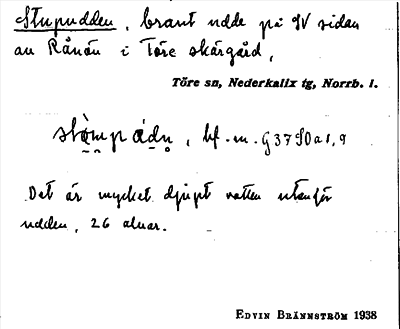 Stupudden, brant udde på SV sidan
av Rånön i Töre skärgård,
Töre sn, Nederkalix tg, Norrb. l.
bf. m. G37 SO a 1, 9
Det är mycket djupt vatten utanför
udden, 26 alnar.
EDVIN BRÄNNSTRÖM 1938